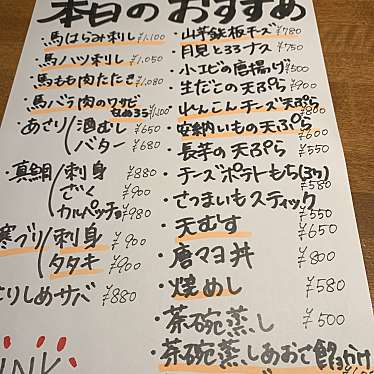 本日のおすすめ
・馬はらみ刺し ¥1,100
・馬ハツ刺し ¥1,050
・馬もも肉たたき ¥1,080
・馬バラ肉のワサビ
¥1,100
あさり/酒むし ¥650
バター ¥680
・真鯛/刺身 ¥880
ざく ¥900
カルパッチョ ¥980
寒ブリ/刺身 ¥900
タタキ ¥900
りしめサバ ¥880
・山芋鉄板チーズ ¥780
・月見とろろナス ¥750
・小エビの唐揚げ ¥500
・生だこの天ぷら ¥900
・れんこんチーズ天ぷら
・安納いもの天ぷら ¥600
・長芋の天ぷら ¥550
・チーズポテトもち(3ヶ) ¥580
・さつまいもスティック ¥550
・天むす ¥650
・唐マヨ丼 ¥800
・焼めし ¥580
・茶碗蒸し ¥500
・茶碗蒸しあおさ餡かけ